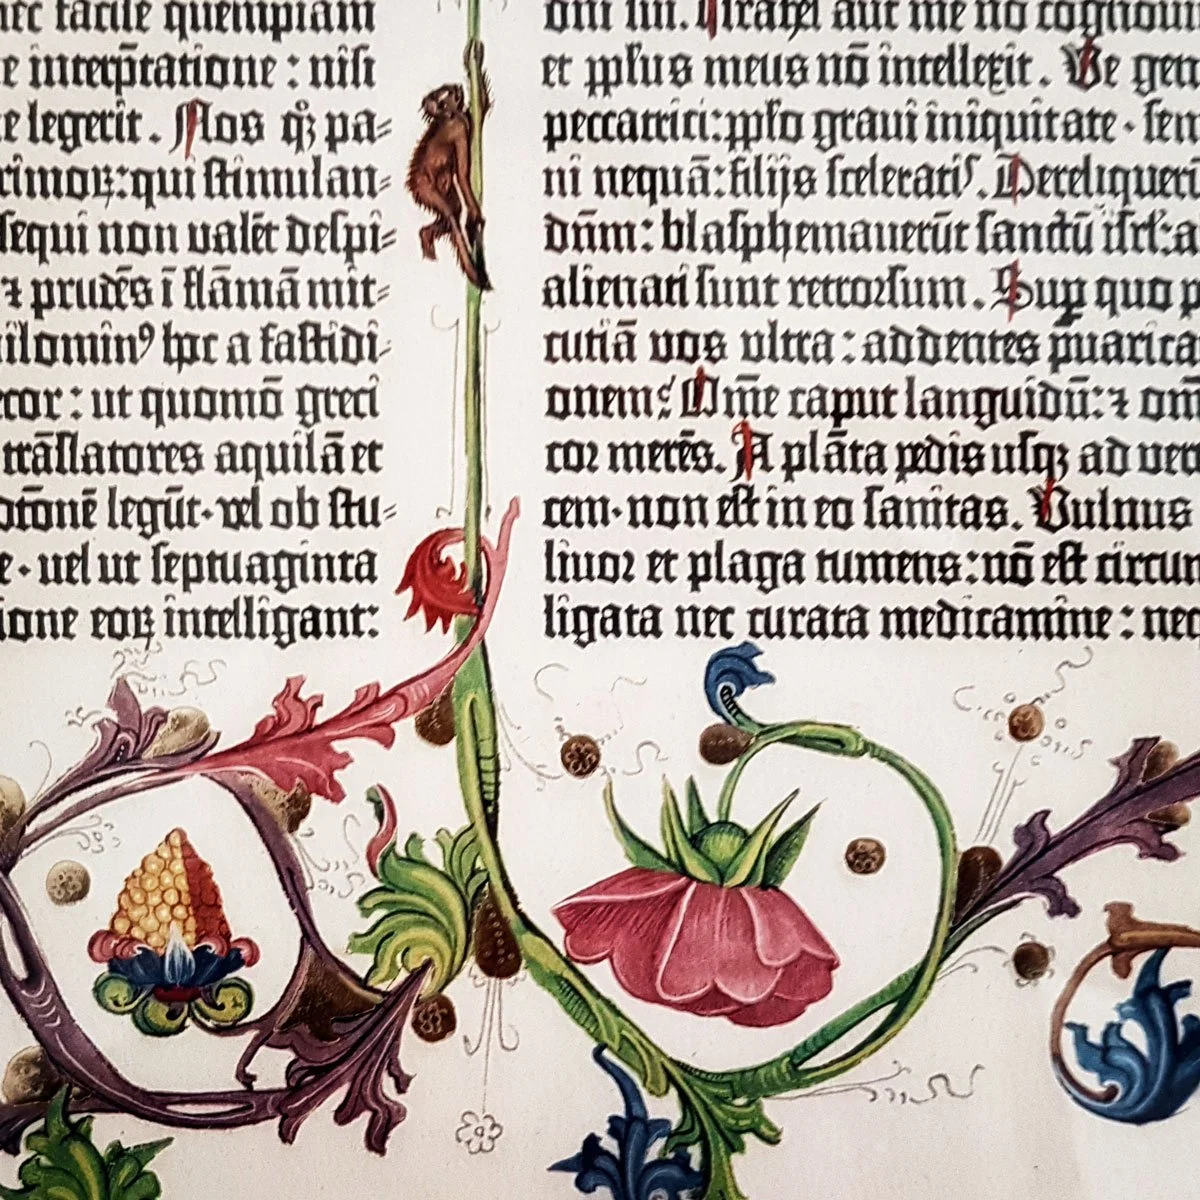 nec facile quempiam
e interp̄tatione : nisi
e legerit . Nos qͥꝫ pa⸗
rimoꝝ: qui stimulan⸗
sequi non valēt despi⸗
⁊ prudēs ī flāmā mit⸗
ilominꝰ hec a fastidi⸗
cor : ut quomō greci
trāslatores aquilā et
otōnē legūt · vel ob stu⸗
e · vel ut septuaginta
ione eoꝝ intelligant:
oni sui . Israhel aut me nō cognoui
et ppl̄us meus nō intellexit . Ve gen
peccatrici: ppl̄o graui iniquitate · sem
ni nequā: filijs sceleratis . Dereliquerū
dn̄m: blasphemauerūt sanctū isrl̄: a
alienati sunt retrorsum . Sup quo p
cutiā vos ultra : addentes p̄uarica
onem? Om̄e caput languidū: ⁊ om̄
cor merēs. A plāta pedis usqꝫ ad ver
cem · non est in eo sanitas . Vulnus
liuor et plaga tumens: nō est circum
ligata nec curata medicamine : nec